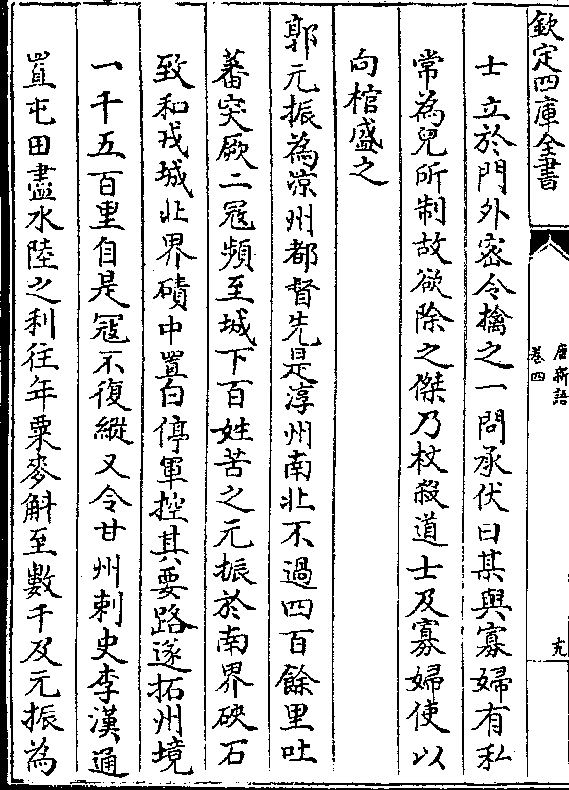 欽定四庫全書
唐新語
卷四
士立於門外密令擒之一問承伏曰某與寡婦有私
常為兒所制故欲除之傑乃杖殺道士及寡婦使以
向棺盛之
郭元振為涼州都督先是涼州南北不過四百餘里吐
蕃突厥二冦頻至城下百姓苦之元振於南界硤石
致和戎城北界磧中置白停軍控其要路遂拓州境
一千五百里自是冦不復縱又令甘州刺史李漢通
置屯田盡水陸之利往年粟麥斛至數千及元振為